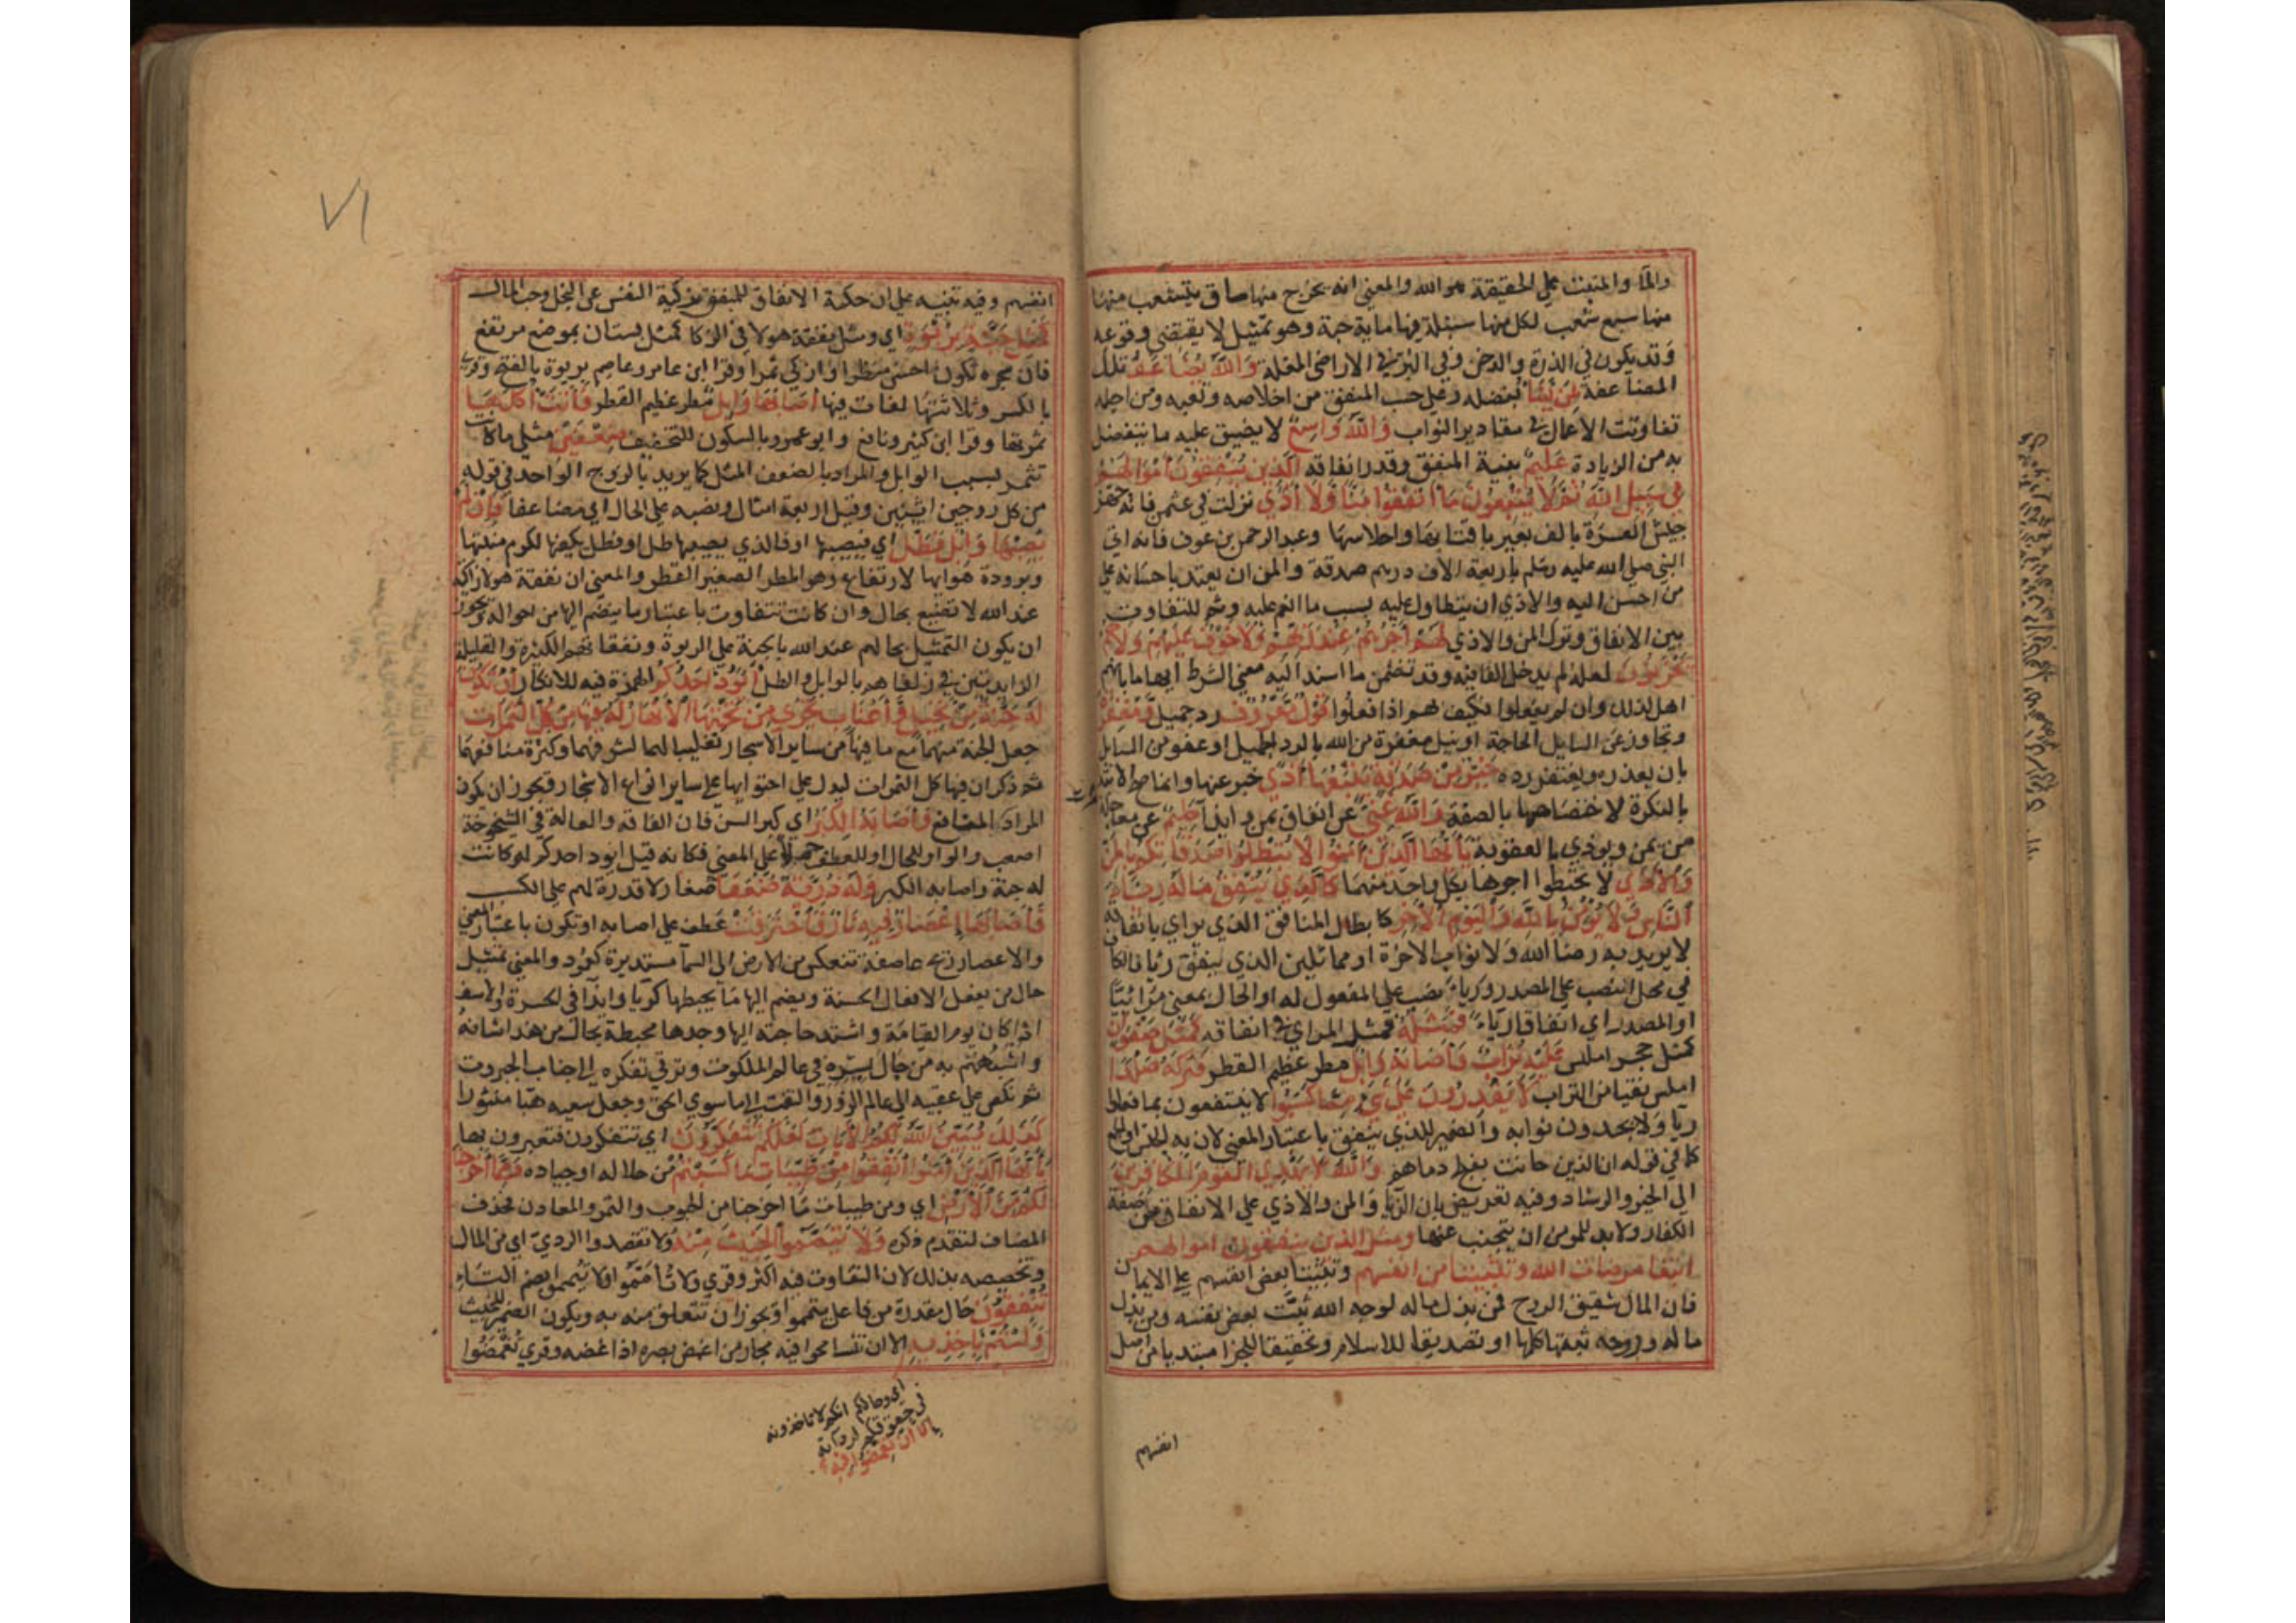 والماء والمنبت على الحقيقة هو الله والمعنى انه يخرج منها ساق يتشعب منها
منها سبع شعب لكل منها سنبلة فيها ماية حبة وهو تمثيل لا يقتضي وقوعه
وقد يكون في الذرة والدخن وفي البر في الاراضي المغلة وَاللهُ يُضَاعِفُ تلك
المضاعفة لِمَنْ يَشَا بفضله وعلى حسب المنفق من اخلاصه وتعبه ومن اجله
تفاوتت الاعمال في مقادير الثواب وَاللهُ وَاسِعٌ لا يضيق عليه ما يتفضل
به من الزيادة عَلِيمٌ بنية المنفق وقدر انفاقه الَّذِينَ يُنْفِقُونَ اَمْوَالَهُمْ
فِي سَبِيلِ اللهِ ثُمَّ لَا يُتْبِعُونَ مَا أَنْفَقُوا مَنًّا وَلَا أَذًى نزلت في عثمن فانه جهز
جيش العسرة بالف بعير باقتابها واحلاسها وعبد الرحمن بن عوف فانه اتى
النبي صلى الله عليه وسلم باربعة الاف درهم صدقة والمن ان يعتد باحسانه على
من احسن اليه والاذى ان يتطاول عليه بسبب ما انعم عليه وثم للتفاوت
بين الانفاق وترك المن والاذى لَهُمْ أَجْرُهُمْ عِنْدَ رَبِّهِمْ وَلَا خَوْفٌ عَلَيْهِمْ وَلَا هُمْ
يَحْزَنُونَ لعله لم يدخل الفا فيه وقد تضمن ما اسند اليه معنى الشرط ايهاما بانهم
اهل لذلك وان لم يفعلوا فكيف بهم اذا فعلوا قَوْلٌ مَعْرُوفٌ رد جميل وَمَغْفِرَةٌ
وتجاوز عن السايل الحاجة او نيل مغفرة من الله بالرد الجميل او عفو من السايل
بان يعذره ويغتفر رده خَيْرٌ مِنْ صَدَقَةٍ يَتْبَعُهَا أَذًى خبر عنهما وانما صح الابتدا
بالنكرة لاختصاصها بالصفة وَاللهُ غَنِيٌّ عن انفاق بمن وايذا حَلِيمٌ عن معاجلة
من يمن ويوذي بالعقوبة يَا أَيُّهَا الَّذِينَ آمَنُوا لَا تُبْطِلُوا صَدَقَاتِكُمْ بِالْمَنِّ
وَالْأَذَى لا تحبطوا اجرها بكل واحد منهما كَالَّذِي يُنْفِقُ مَالَهُ رِئَاءَ
النَّاسِ وَلَا يُؤْمِنُ بِاللهِ وَالْيَوْمِ الْآخِرِ كابطال المنافق الذي يراي بانفاقه
لا يريد به رضا الله ولا ثواب الاخرة او مماثلين الذي ينفق ريا فالكاف
في محل النصب على المصدر ورياء نصب على المفعول له او الحال بمعنى مرائيا
او المصدر اي انفاقا رياء فَمَثَلُهُ فمثل المراي في انفاقه كَمَثَلِ صَفْوَانٍ
كمثل حجر املس عَلَيْهِ تُرَابٌ فَأَصَابَهُ وَابِلٌ مطر عظيم القطر فَتَرَكَهُ صَلْدًا
املس نقيا من التراب لَا يَقْدِرُونَ عَلَى شَيْءٍ مِمَّا كَسَبُوا لا ينتفعون بما فعلوا
ريا ولا يجدون ثوابه والضمير للذي ينفق باعتبار المعنى لان به الجنس او الجمع
كما في قوله ان الذين حانت بفلج دماهم وَاللهُ لَا يَهْدِي الْقَوْمَ الْكَافِرِينَ
الى الخير والرشاد وفيه تعريض بان الريا والمن والاذى على الانفاق من صفة
الكفار ولا بد للمومن ان يتجنب عنها ومثل الذين ينفقون اموالهم
ابتغا مرضات الله وتثبيتا من انفسهم وتثبيتا بعض انفسهم على الايمان
فان المال شقيق الروح فمن بذل ماله لوجه الله ثبت بعض نفسه ومن بذل
ماله وروحه ثبتها كلها او تصديقا للاسلام وتحقيقا للجزا مبتديا من اصل
انفسهم
٧١
انفسهم وفيه تنبيه على ان حكمة الانفاق للمنفق تزكية النفس عن البخل وحب المال
كَمَثَلِ جَنَّةٍ بِرَبْوَةٍ اي ومثل نفقة هولا في الزكا كمثل بستان بموضع مرتفع
فان شجره يكون احسن منظرا وازكى ثمرا وقرا ابن عامر وعاصم بربوة بالفتح وقرئ
بالكسر وثلاثتها لغات فيها أَصَابَهَا وَابِلٌ مطر عظيم القطر فَآتَتْ أُكُلَهَا
ثمرتها وقرا ابن كثير ونافع وابو عمرو بالسكون للتخفيف ضِعْفَيْنِ مثلي ما كانت
تثمر بسبب الوابل والمراد بالضعف المثل كما يريد بالزوج الواحد في قوله
من كل زوجين اثنين وقيل اربعة امثال ونصبه على الحال اي مضاعفا فَإِنْ لَمْ
يُصِبْهَا وَابِلٌ فَطَلٌّ اي فيصيبها او فالذي يصيبها طل او فطل يكفيها لكرم منبتها
وبرودة هوايها لارتفاع وهو المطر الصغير القطر والمعنى ان نفقة هولا زاكية
عند الله لا تضيع بحال وان كانت تتفاوت باعتبار ما ينضم اليها من احواله ويجوز
ان يكون التمثيل بحالهم عند الله بالجنة على الربوة ونفقاتهم الكثيرة والقليلة
الزايدتين في زلفاهم بالوابل والطل أَيَوَدُّ أَحَدُكُمْ الهمزة فيه للانكار أَنْ تَكُونَ
لَهُ جَنَّةٌ مِنْ نَخِيلٍ وَأَعْنَابٍ تَجْرِي مِنْ تَحْتِهَا الْأَنْهَارُ لَهُ فِيهَا مِنْ كُلِّ الثَّمَرَاتِ
جعل الجنة منهما مع ما فيها من ساير الاشجار تغليبا لهما لشرفهما وكثرة منافعهما
ثم ذكر ان فيها كل الثمرات ليدل على احتوايها على ساير انواع الاشجار ويجوز ان يكون
المراد المنافع وَأَصَابَهُ الْكِبَرُ اي كبر السن فان الفاقة والعالة في الشيخوخة
اصعب والواو للحال او للعطف حملا على المعنى فكانه قيل ايود احدكم لو كانت
له جنة واصابه الكبر وَلَهُ ذُرِّيَّةٌ ضُعَفَاءُ صغار لا قدرة لهم على الكسب
فَأَصَابَهَا إِعْصَارٌ فِيهِ نَارٌ فَاحْتَرَقَتْ عطف على اصابه او تكون باعتبار المعنى
والاعصار ريح عاصفة تنعكس من الارض الى السما مستديرة كعمود والمعنى تمثيل
حال من يفعل الافعال الحسنة ويضم اليها ما يحبطها كريا وايذا في الحسرة والاسف
اذا كان يوم القيامة واشتد حاجته اليها وجدها محبطة بحال من هذا شانه
واشبههم به من جال بسره في عالم الملكوت وترقى تفكره الى جناب الجبروت
ثم نكص على عقبيه الى عالم الزور والتفت الى ما سوى الحق وجعل سعيه هبا منثورا
كَذَلِكَ يُبَيِّنُ اللهُ لَكُمُ الْآيَاتِ لَعَلَّكُمْ تَتَفَكَّرُونَ اي تتفكرون فتعتبرون بها
يَا أَيُّهَا الَّذِينَ آمَنُوا أَنْفِقُوا مِنْ طَيِّبَاتِ مَا كَسَبْتُمْ من حلاله او جياده وَمِمَّا أَخْرَجْنَا
لَكُمْ مِنَ الْأَرْضِ اي ومن طيبات ما اخرجنا من الحبوب والتمر والمعادن فحذف
المضاف لتقدم ذكره وَلَا تَيَمَّمُوا الْخَبِيثَ مِنْهُ ولا تقصدوا الردي اي من المال
وتخصيصه بذلك لان التفاوت فيه اكثر وقرئ ولا تأمموا ولا تيمموا بضم التاء
تُنْفِقُونَ حال مقدرة من فاعل تيمموا ويجوز ان تتعلق منه به ويكون الضمير للخبيث
وَلَسْتُمْ بِآخِذِيهِ الا ان تتسامحوا فيه مجاز من اغمض بصره اذا غضه وقرئ تغمضوا
اي وحالكم انكم لا تاخذونه
في حقوقكم لرداته
إلا ان تغمضوا فيه